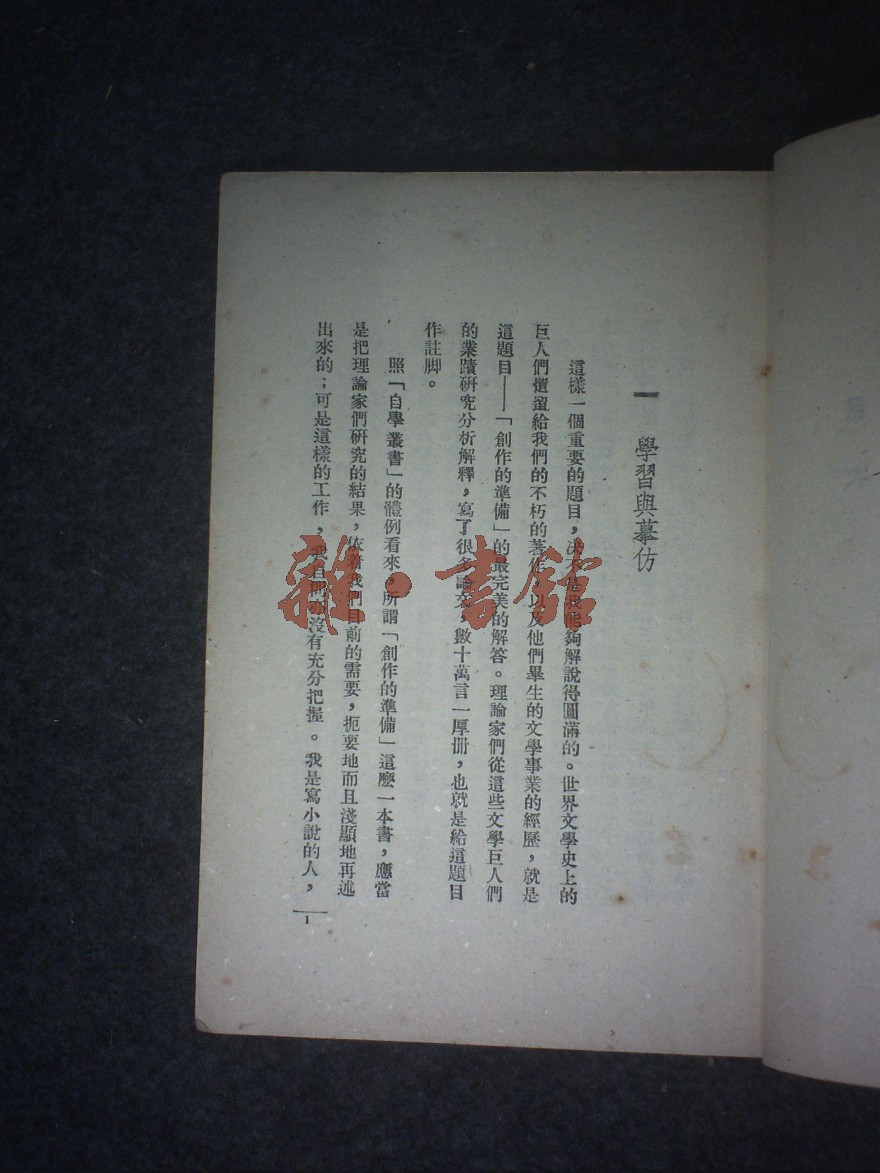 一　學習與摹仿
這樣一個重要的題目，決不是我能夠解說得圓滿的。世界文學史上的
巨人們遺留給我們的不朽的著作，以及他們畢生的文學事業的經歷，就是
這題目——「創作的準備」的最完美的解答。理論家們從這些文學巨人們
的業蹟研究分析解釋，寫了很多論文，數十萬言一厚册，也就是給這題目
作註脚。
照「自學叢書」的體例看來，所謂「創作的準備」這麼一本書，應當
是把理論家們研究的結果，依着我們目前的需要，扼要地而且淺顯地再述
出來的；可是這樣的工作，我自問亦沒有充分把握。我是寫小說的人，
1
雜·書館